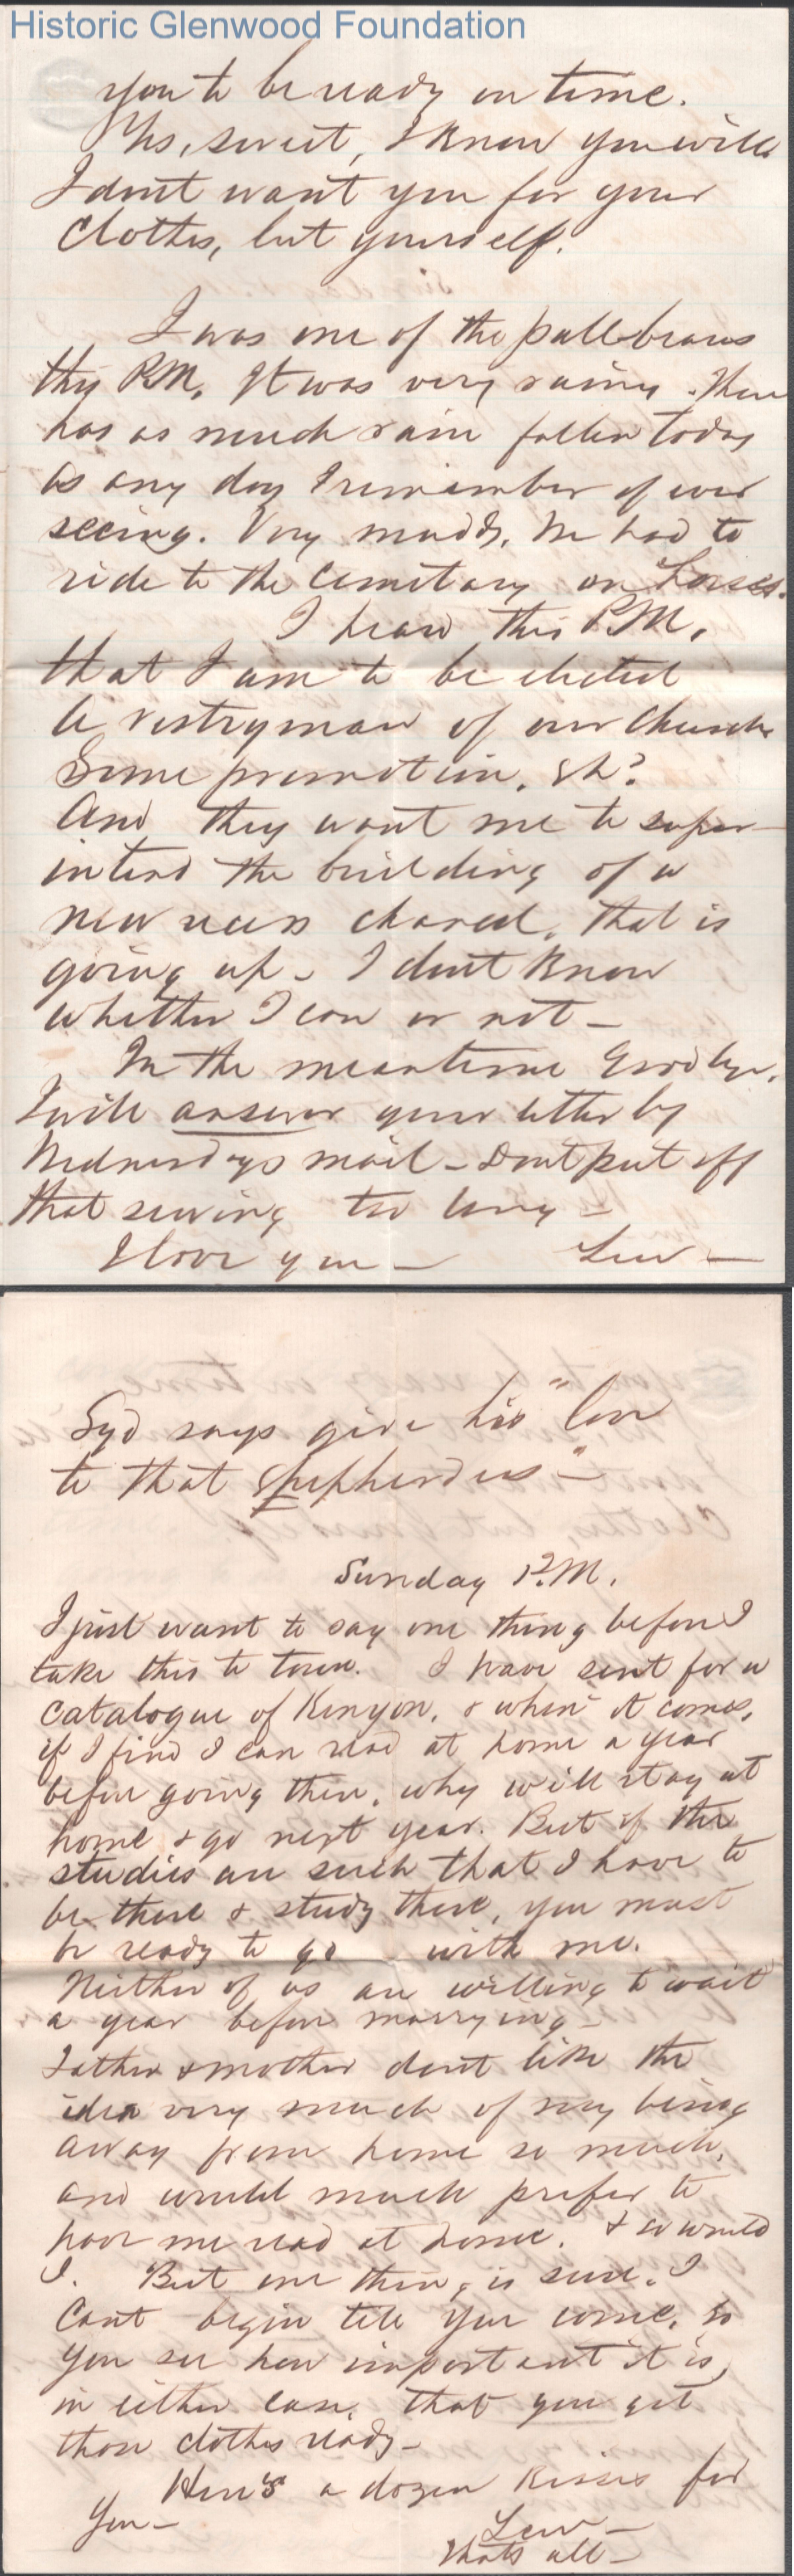 Historic Glenwood Foundation
you to be ready on time.
Yes, sweet, I know you will
I dont want you for your
Clothes, but yourself.
I was one of the pallbearers
this P.M. It was very rainy. There
has as much rain fallen today
as any day I remember of ever
seeing. Very muddy. We had to
ride to the Cemetary on horses.
I hear this P.M.
that I am to be elected
a vestryman of our Church
Some promotion, eh?
And they want me to super-
intend the building of a
new chancel, that is
going up - I dont know
whether I can or not -
In the meantime Goodbye.
I will answer your letter by
Wednesdays mail - Dont put off
that sewing too long -
I love you - Lew -
Syd says give his "love
to that shepherdess" -
Sunday P.M.
I just want to say one thing before I
take this to town. I have sent for a
catalogue of Kenyon, & when it comes,
if I find I can read at home a year
before going there, why will stay at
home & go next year. But if the
studies are such that I have to
be there & study there, you must
be ready to go with me.
Neither of us are willing to wait
a year before marrying -
Father & mother dont like the
idea very much of my being
away from home so much,
and would much prefer to
have me read at home. & so would
I. But one thing is sure. I
Cant begin till you come. So
you see how important it is,
in either case, that you get
those clothes ready -
Here's a dozen kisses for
You - Lew -
Thats all -